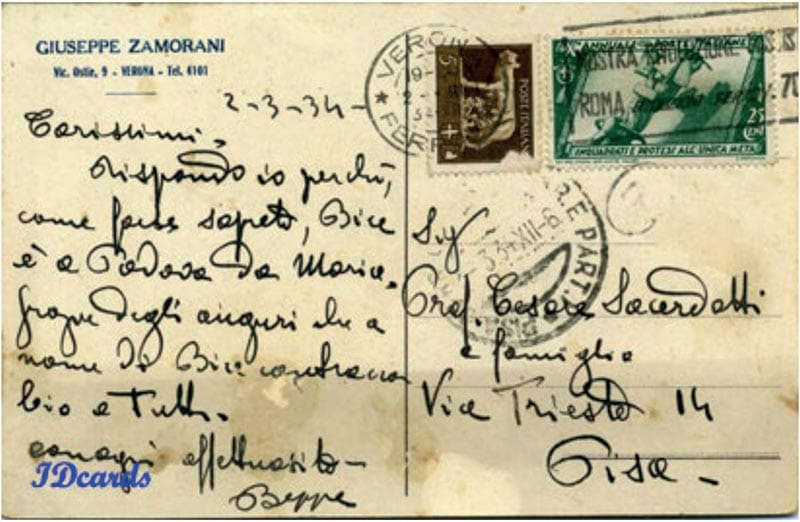 GIUSEPPE ZAMORANI
Vic. Ostie, 9 - VERONA - Tel. 4101
2-3-34-
Carissimi,
Rispondo io perchè,
come forse sapete, Bice
è a Padova da Maria.
Grazie degli auguri che a
nome di Bice contraccam
bio a Tutti.
affettuosità
Beppe
IDcards
VERONA
FERR
5
POSTE ITALIANE
ANNUALE
MOSTRA RIVOLUZIONE
ROMA
25
CENT
INQUADRATI E PROTESI ALL'UNICA META
3.34 XII-6
PART.
Sig
Prof. Cesare Sacerdotti
e famiglia
Via Trieste 14
Pisa -